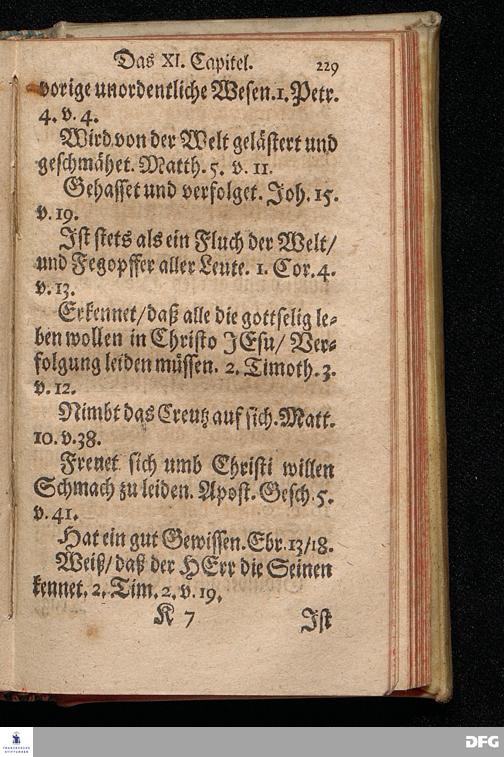 Das XI. Capitel. 229
vorige unordentliche Wesen. 1. Petr.
4. v. 4.
Wird von der Welt gelästert und
geschmähet. Matth. 5. v. 11.
Gehasset und verfolget. Joh. 15.
v. 19.
Ist stets als ein Fluch der Welt/
und Fegopffer aller Leute. 1. Cor. 4.
v. 13.
Erkennet/ daß alle die gottselig le-
ben wollen in Christo JEsu/ Ver-
folgung leiden müssen. 2. Timoth. 3.
v. 12.
Nimbt das Creutz auf sich. Matt.
10. v. 38.
Frenet sich umb Christi willen
Schmach zu leiden. Apost. Gesch. 5.
v. 41.
Hat ein gut Gewissen. Ebr. 13/18.
Weiß/ daß der HErr die Seinen
kennet. 2. Tim. 2. v. 19.
K 7 Ist
FRANCKESCHE
STIFTUNGEN
DFG